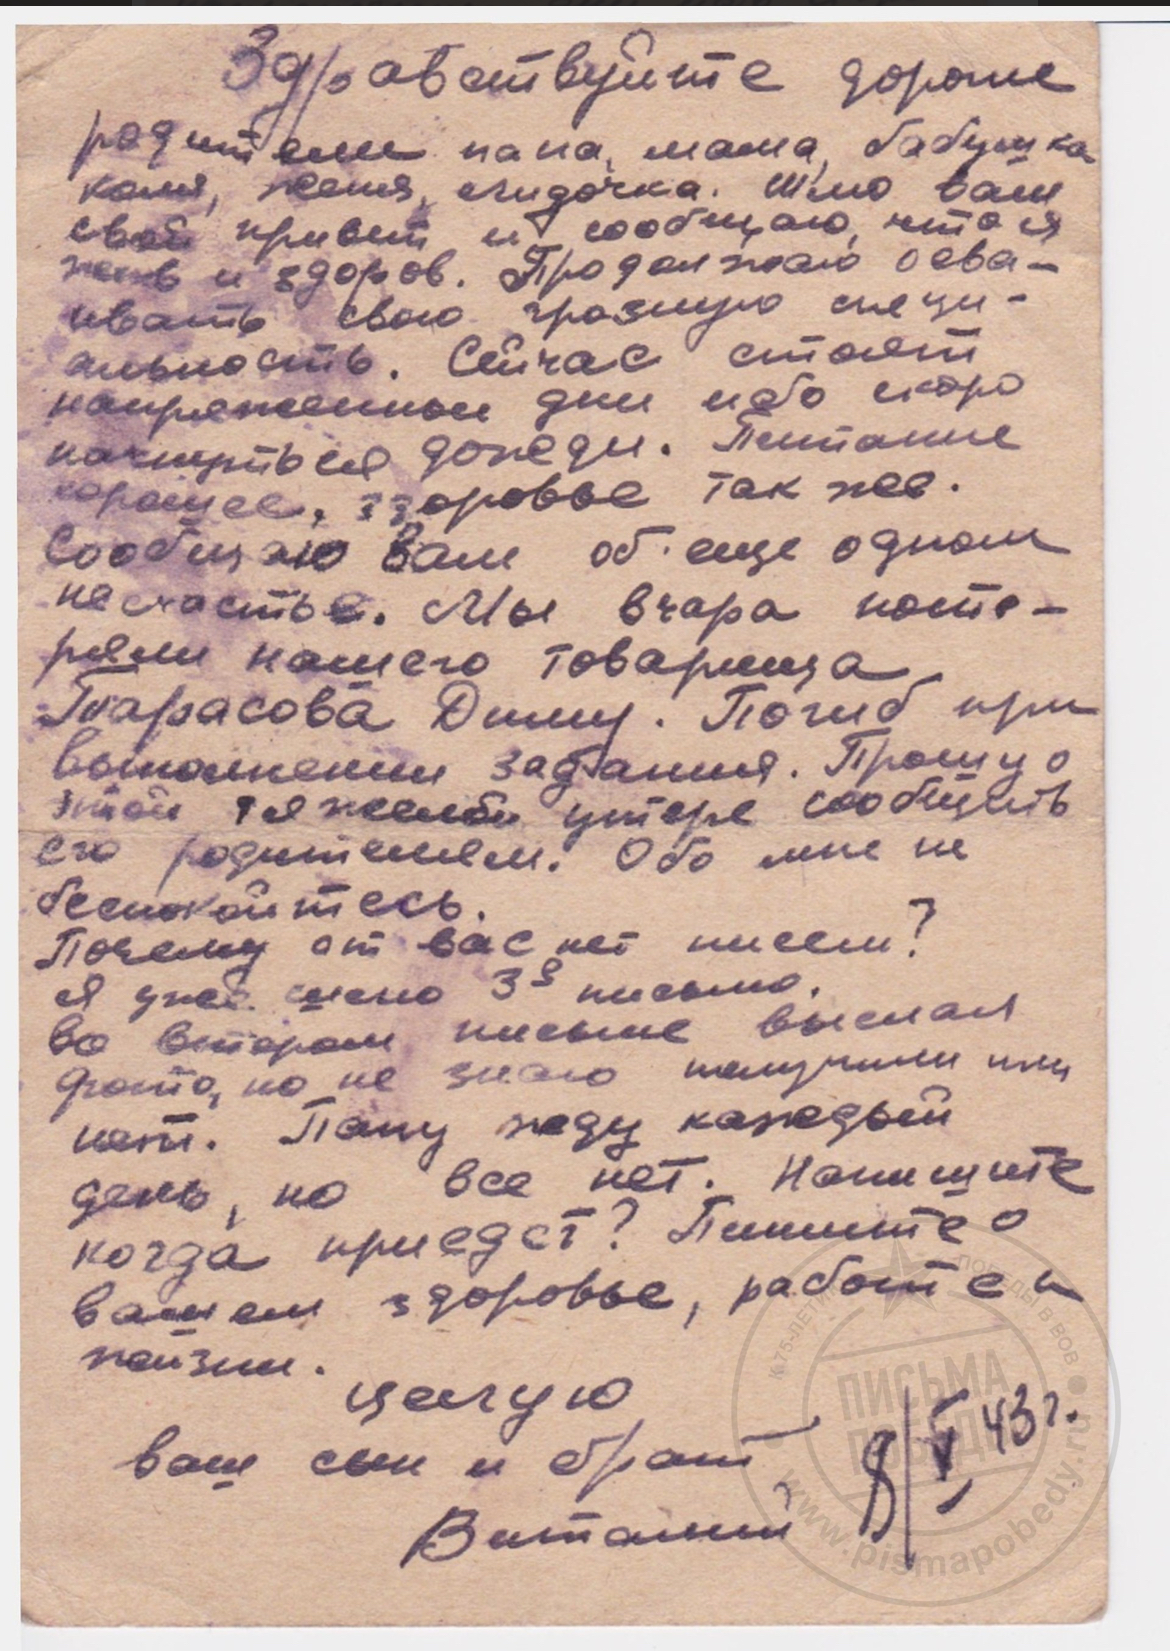 Здравствуйте дорогие
родители папа, мама, бабушка
коля, женя, лидочка. Шлю вам
свой привет и сообщаю, что я
жив и здоров. Продолжаю осва-
ивать свою грозную специ-
альность. Сейчас стоят
напряженные дни ибо скоро
начнуться дожди. Питание
хорошее, здоровье так же.
Сообщаю вам об еще одном
несчастье. Мы вчера поте-
ряли нашего товарища
Тарасова Диму. Погиб при
выполнении задания. Прошу о
этой тяжелой утере сообщить
его родителям. Обо мне не
беспокойтесь.
Почему от вас нет писем?
Я уже шлю 3е письмо.
Во втором письме выслал
фото, но не знаю получили или
нет. Папу жду каждый
день, но все нет. Напишите
когда приедет? Пишите о
вашем здоровье, работе и
жизни.
Целую
ваш сын и брат
Виталий 8/V 43 г.
К 75-ЛЕТИЮ ПОБЕДЫ В ВОВ
ПИСЬМА
ПОБЕДЫ
www.pismapobedy.ru